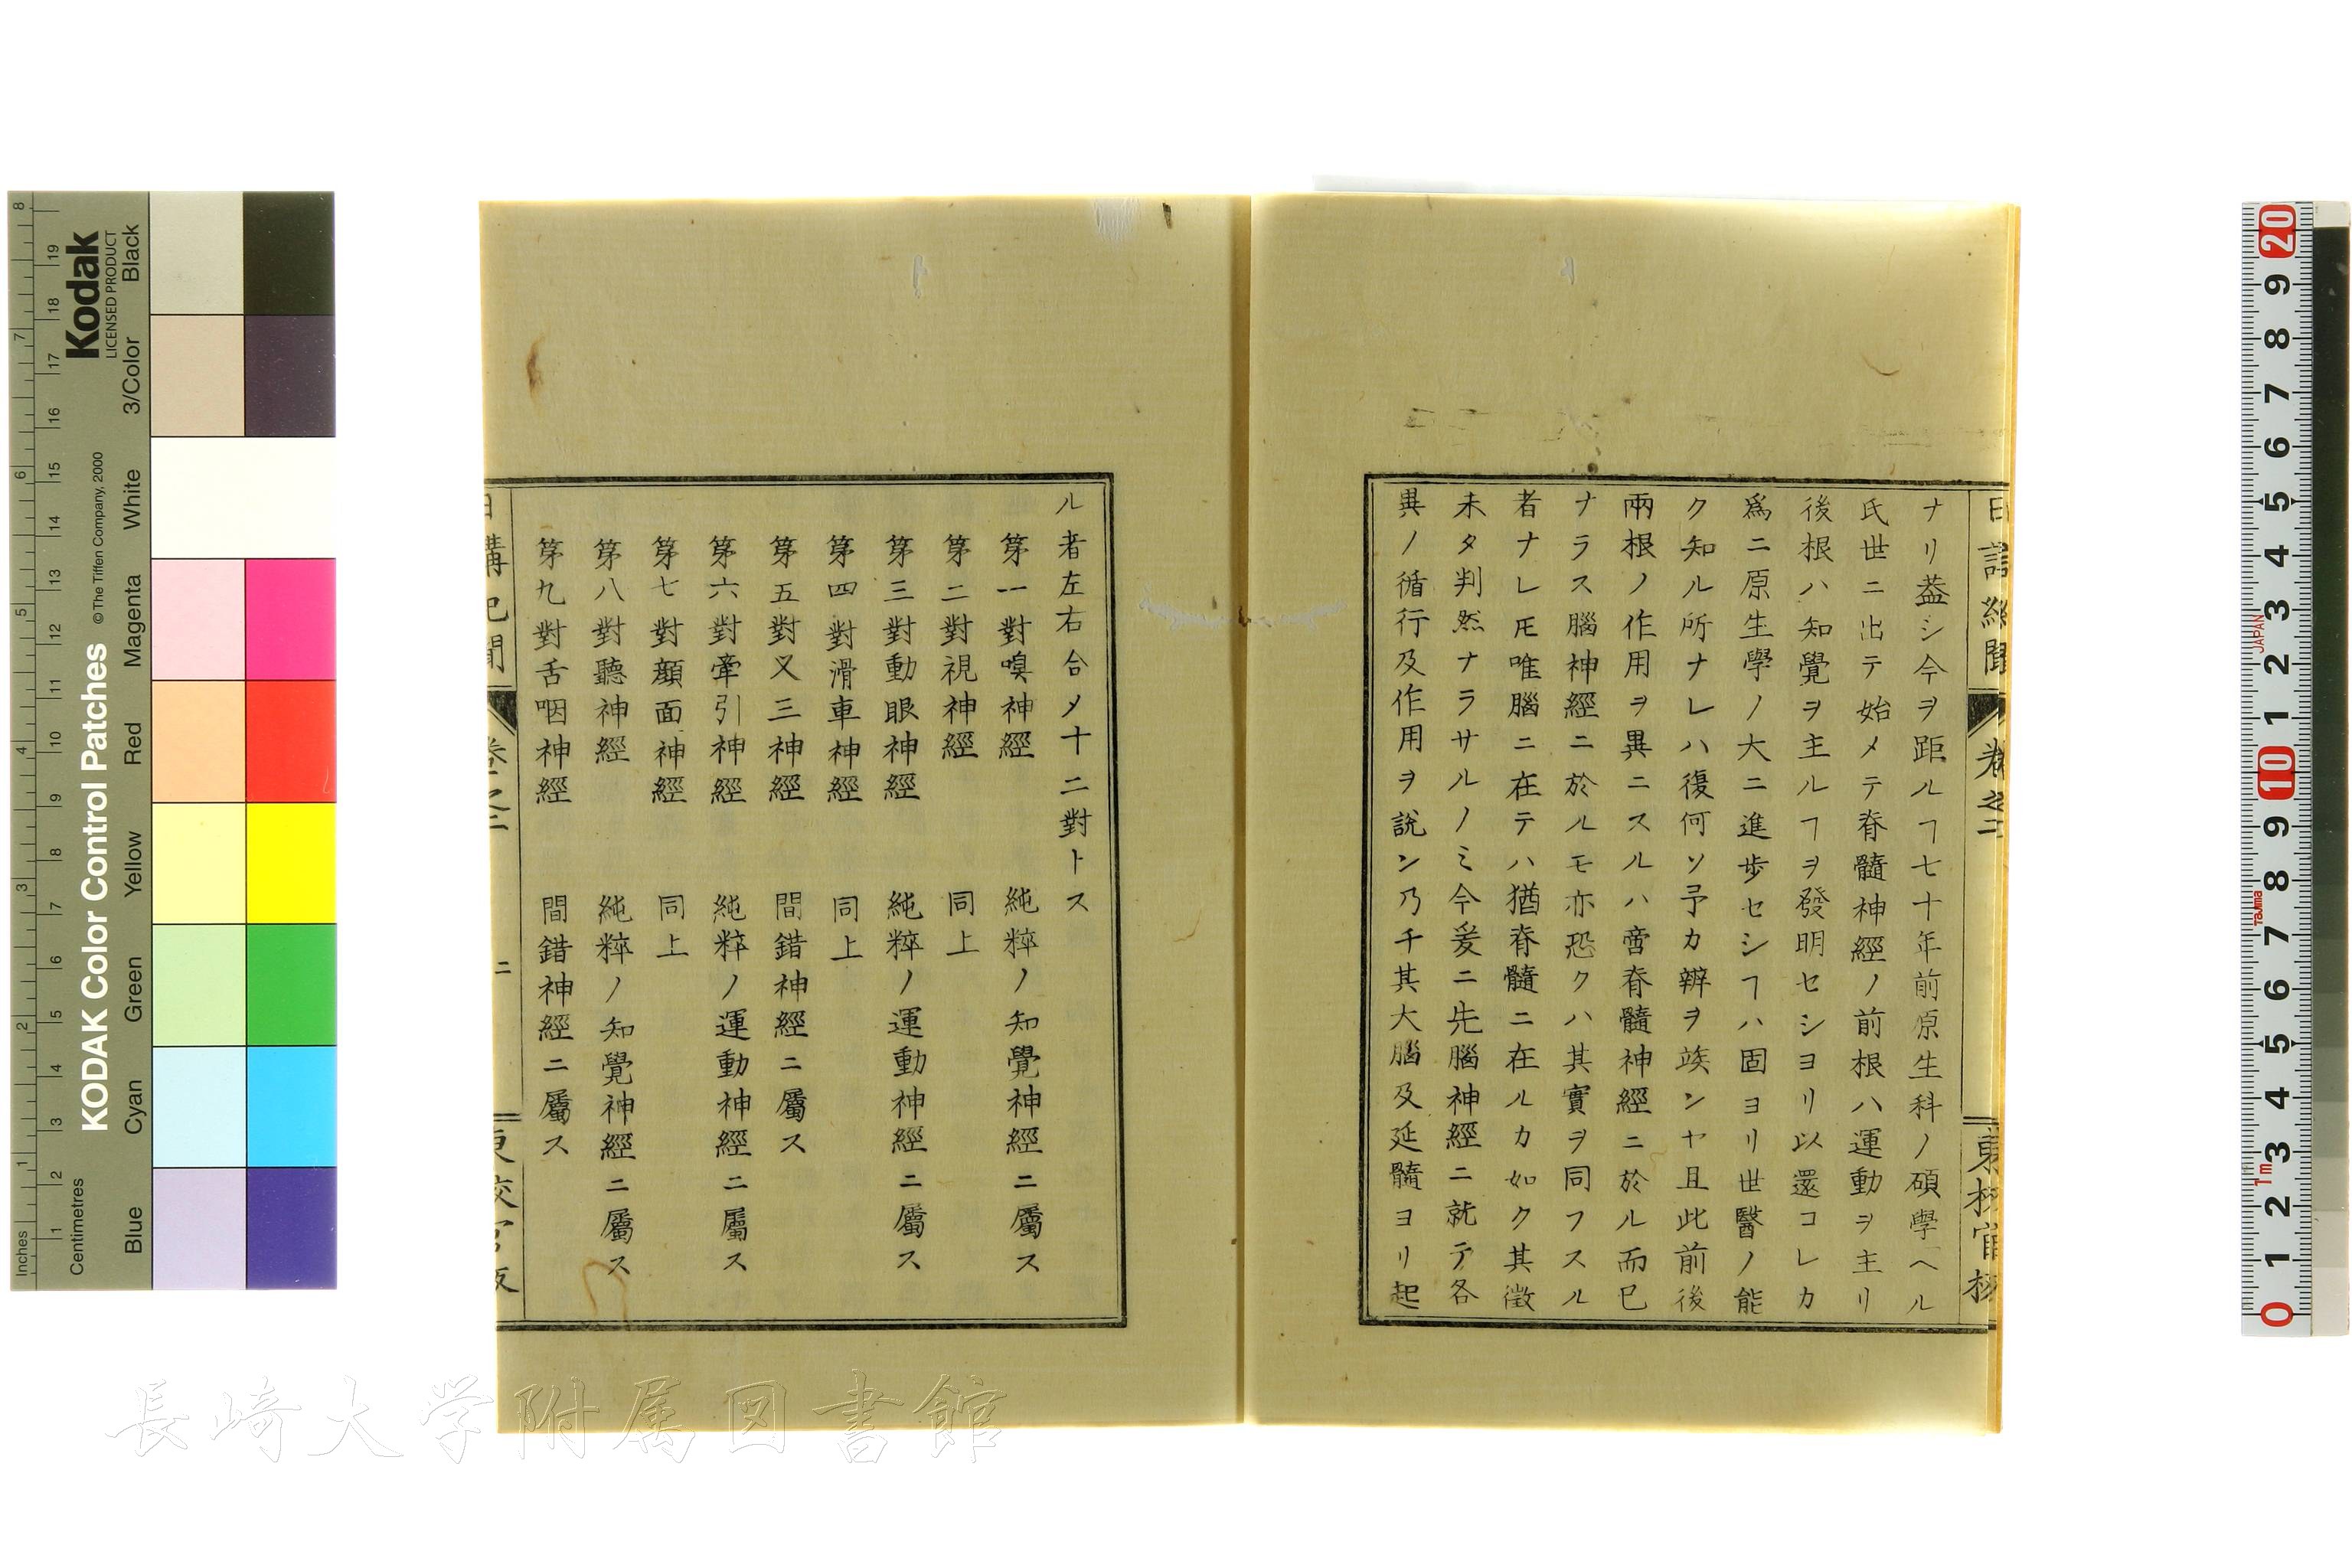 ナリ葢シ今ヲ距ルヿ七十年前原生科ノ碩學ヘル
氏世ニ出テ始メテ脊髓神經ノ前根ハ運動ヲ主リ
後根ハ知覺ヲ主ルヿヲ發明セシヨリ以還コレカ
爲ニ原生學ノ大ニ進歩セシヿハ固ヨリ世醫ノ能
ク知ル所ナレハ復何ソ予カ辨ヲ竢ンヤ且此前後
兩根ノ作用ヲ異ニスルハ啻脊髓神經ニ於ル而已
ナラス腦神經ニ於ルモ亦恐クハ其實ヲ同フスル
者ナレ𪜈唯腦ニ在テハ猶脊髓ニ在ルカ如ク其徵
未タ判然ナラサルノミ今爰ニ先腦神經ニ就テ各
異ノ循行及作用ヲ説ン乃チ其大腦及延髓ヨリ起
ル者左右合メ十二對トス
第一對嗅神經 純粹ノ知覺神經ニ屬ス
第二對視神經 同上
第三對動眼神經 純粹ノ運動神經ニ屬ス
第四對滑車神經 同上
第五對叉三神經 間錯神經ニ屬ス
第六對牽引神經 純粹ノ運動神經ニ屬ス
第七對顔面神經 同上
第八對聽神經 純粹ノ知覺神經ニ屬ス
第九對舌咽神經 間錯神經ニ屬ス
日講記聞 卷之二 二
長崎大学附属図書館
KODAK Color Control Patches © The Tiffen Company, 2000
Kodak
LICENSED PRODUCT
Inches 1 2 3 4 5 6 7 8
Centimetres 1 2 3 4 5 6 7 8 9 10 11 12 13 14 15 16 17 18 19
Blue Cyan Green Yellow Red Magenta White 3/Color Black
0 1 2 3 4 5 6 7 8 9 10 1 2 3 4 5 6 7 8 9 20
1m Tajima JAPAN